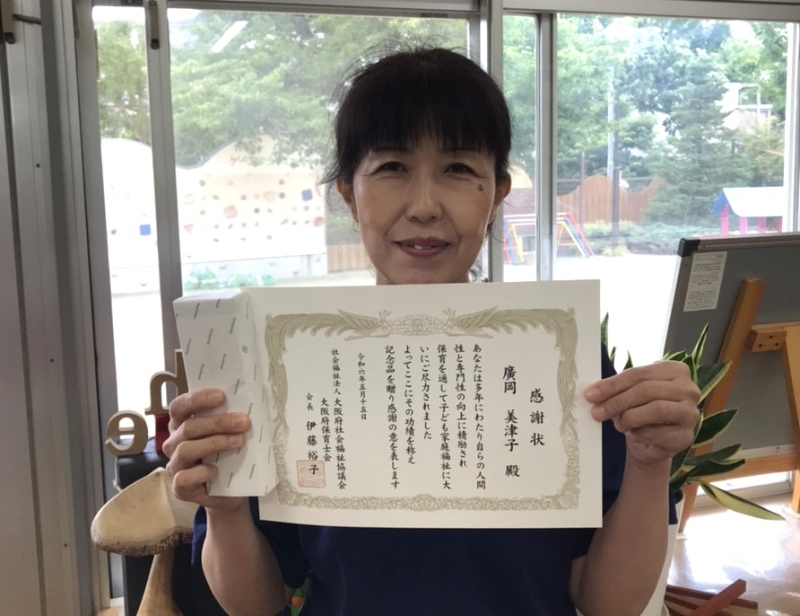 感謝状
廣岡 美津子 殿
あなたは多年にわたり自らの人間
性と専門性の向上に精励され
保育を通して子ども家庭福祉に大
いにご尽力されました
よってここにその功績を称え
記念品を贈り感謝の意を表します
令和六年五月十五日
社会福祉法人 大阪府社会福祉協議会
大阪府保育士会
会長 伊藤 裕子